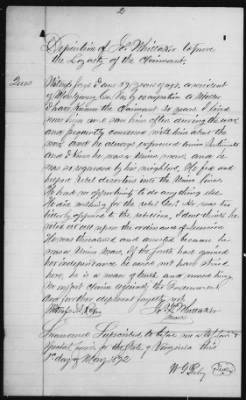 2
Deposition of Jos Whitaker to prove
the Loyalty of the Claimant.
Ques
years of age, a resident
of Montgomery Co. Va by occupation a
I have known the Claimant 20 years I lived
near him and saw him often during the war
and frequently conversed with him about the
war and he always expressed Union Sentiments
and I know he was a Union man, and he
was so regarded by his neighbors. He fed and
helped Rebel deserters into the Union lines
He had no opportunity to do any thing else
He did nothing for the rebel Govt. He was too
bitterly opposed to the rebellion, I dont think he
voted at all upon the ordinance of Secession
He was threatened and arrested because he
was a Union man, if the South had gained
her independence he could not have lived
here, he is a man of truth and
no unjust claim against the Government
and further deponent sayeth not
Jos Whitaker
Sworn and Subscribed to before me
Special Comr for the State of Virginia this
1st day of May 1872